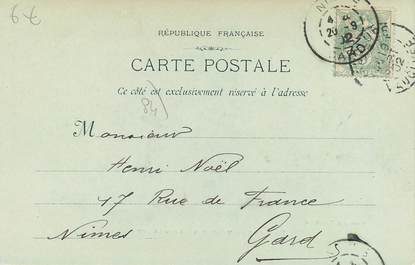 6€
RÉPUBLIQUE FRANÇAISE
CARTE POSTALE
Ce côté est exclusivement réservé à l'adresse
84)
Monsieur
Henri Noël
47 Rue de France
Nîmes Gard